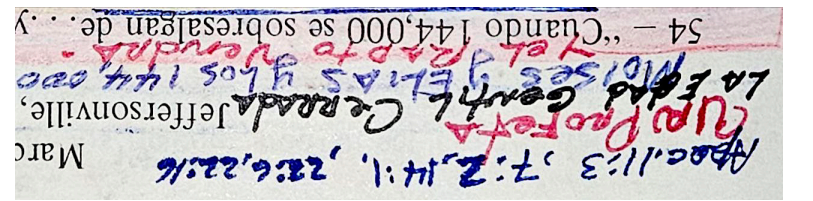 Apoc. 11:3, 7:2, 14:1, 22:6, 22:16 Marc
Un Profeta
LA Edad Gentil Cerrada Jeffersonville,
Moises y ELIAS y Los 144,000
y el Rapto vendra.
54 – “Cuando 144,000 se sobresalgan de. . . y